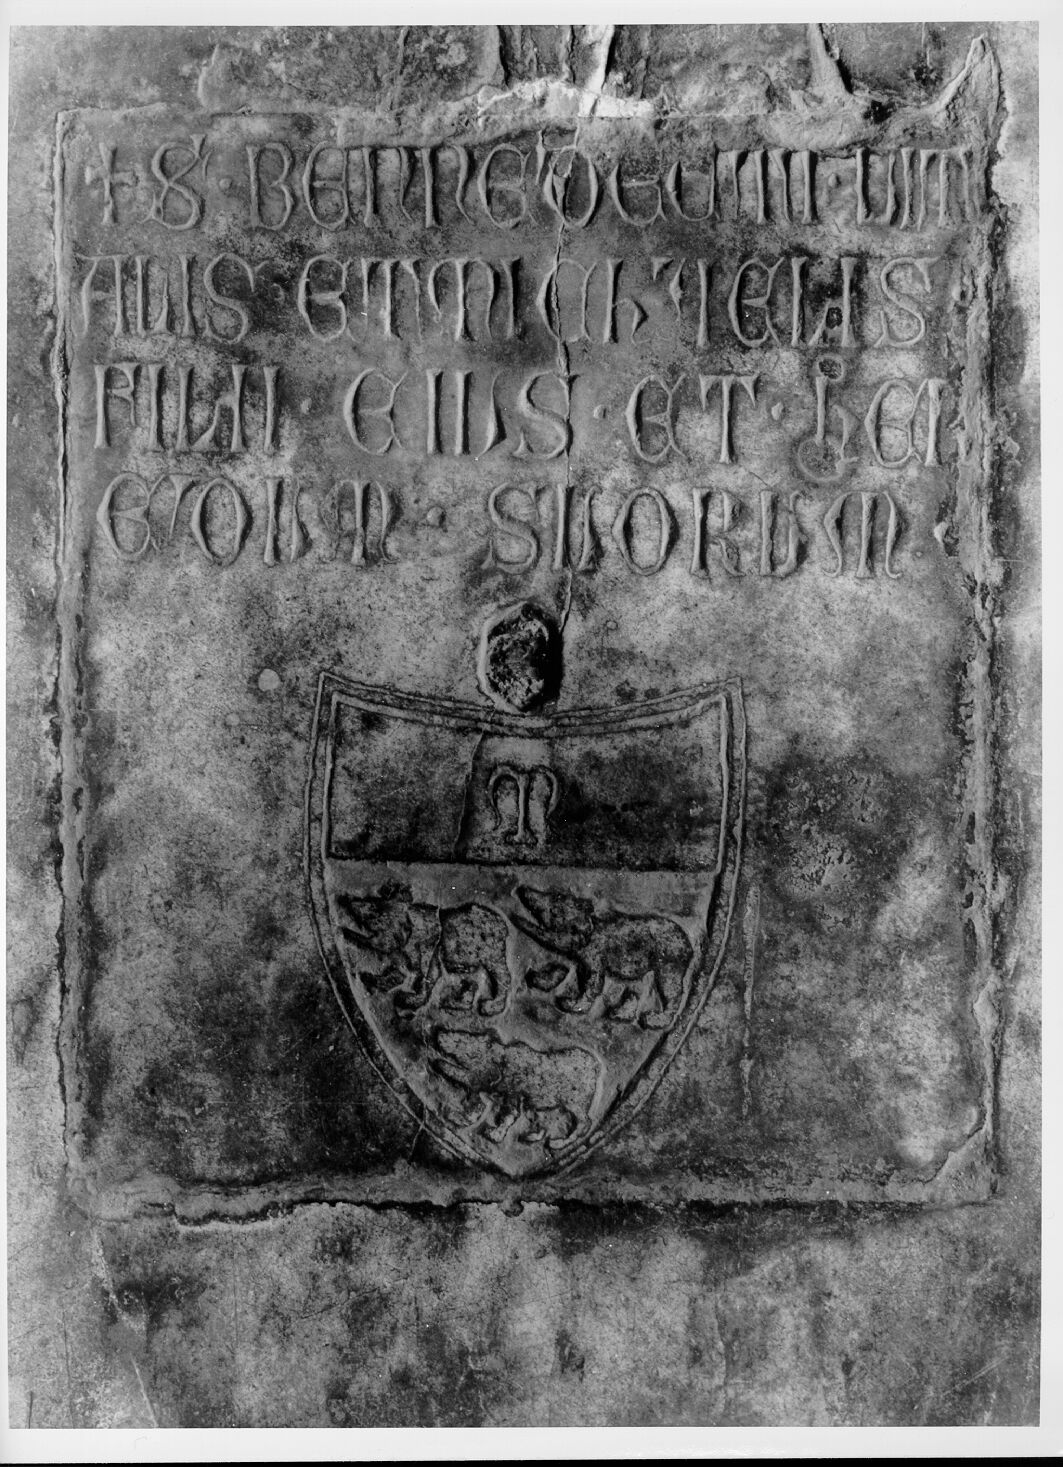 + S · BENNEDECTINI · VIT
ALIS ET MICHIELIS
FILII · EIUS · ET · HER
EDUM · SUORUM
M